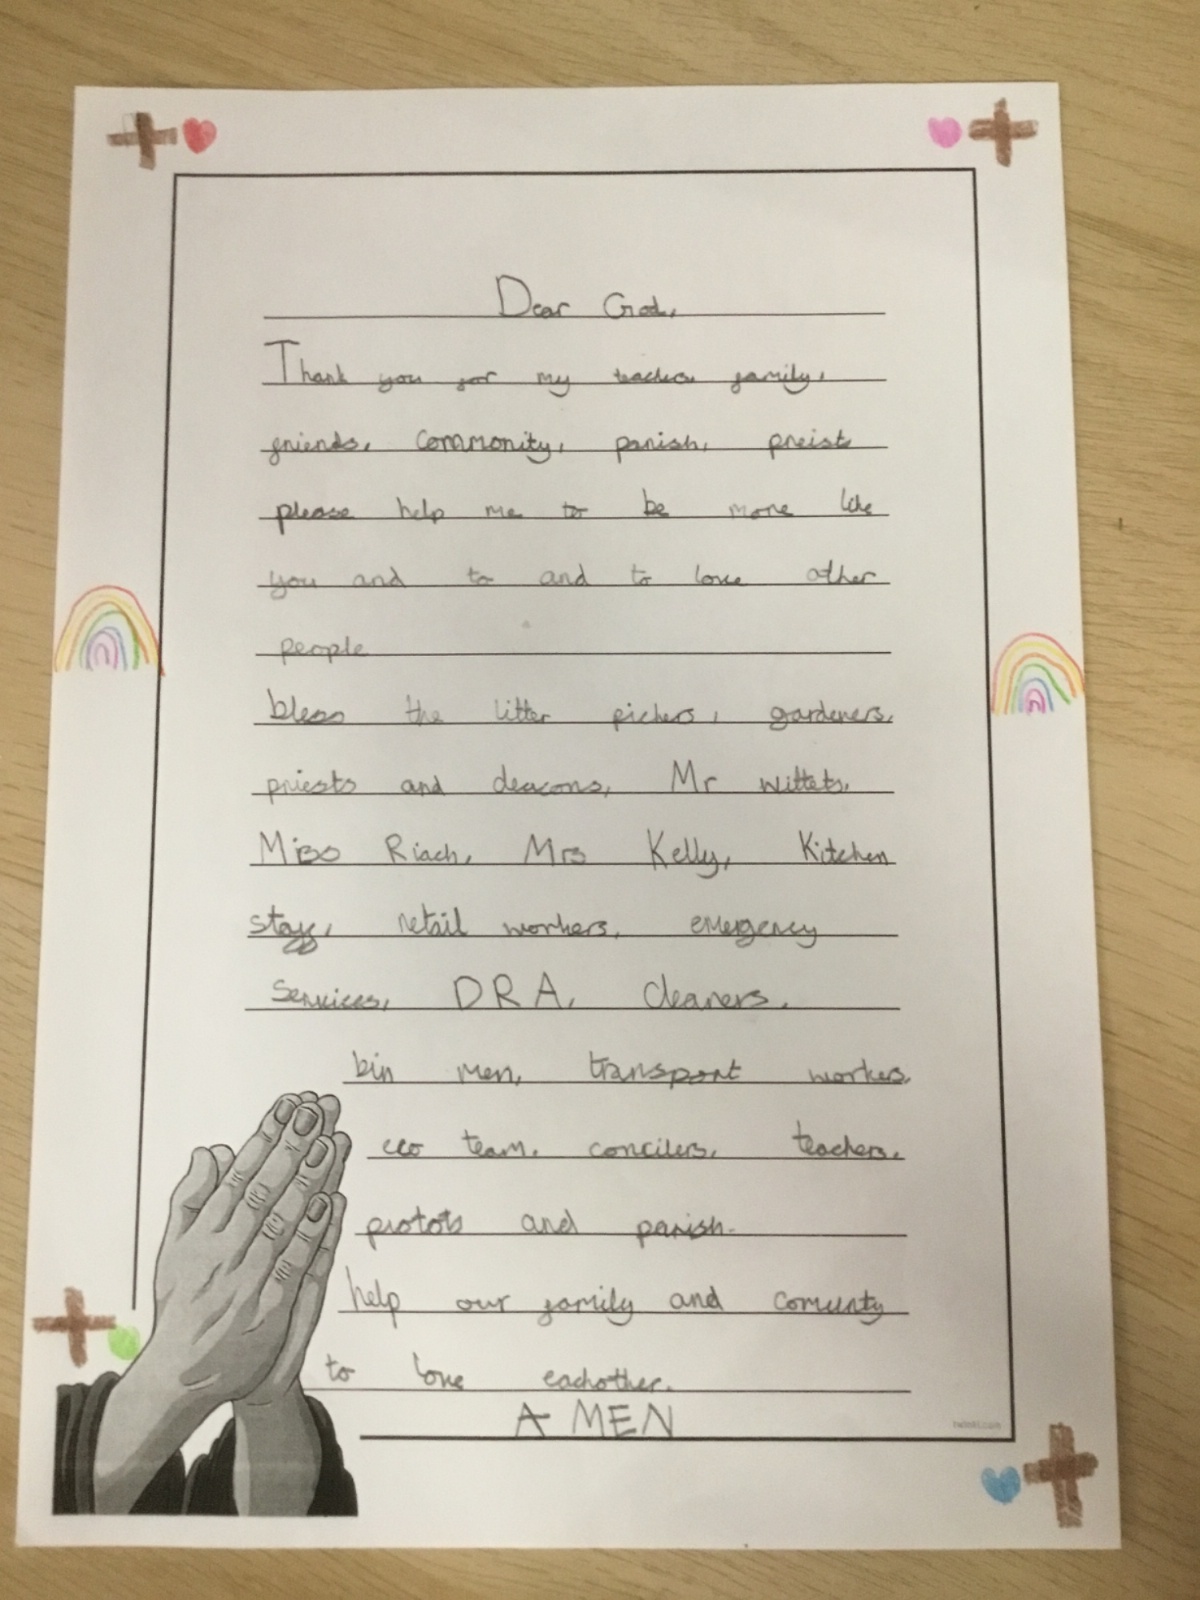 Dear God,
Thank you for my teacher family,
friends, commonity, parish, preist
please help me to be more like
you and to and to love other
people
bless the litter pickers, gardeners,
priests and deacons, Mr Wittets,
Miss Riach, Mrs Kelly, Kitchen
staff, retail workers, emergency
Services, DRA, cleaners.
bin men, transport workers,
ceo team, concilers, teachers,
and parish.
help our family and comunty
to love eachother.
AMEN